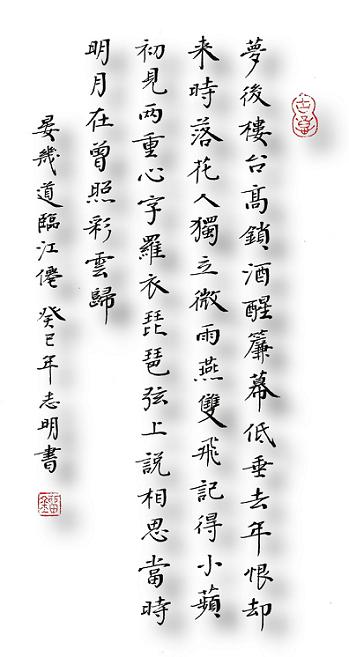 夢後樓台高鎖酒醒簾幕低垂去年恨却
来時落花人獨立微雨燕雙飛記得小蘋
初見两重心字羅衣琵琶弦上說相思當時
明月在曾照彩雲歸
晏幾道臨江僊 癸巳年志明書